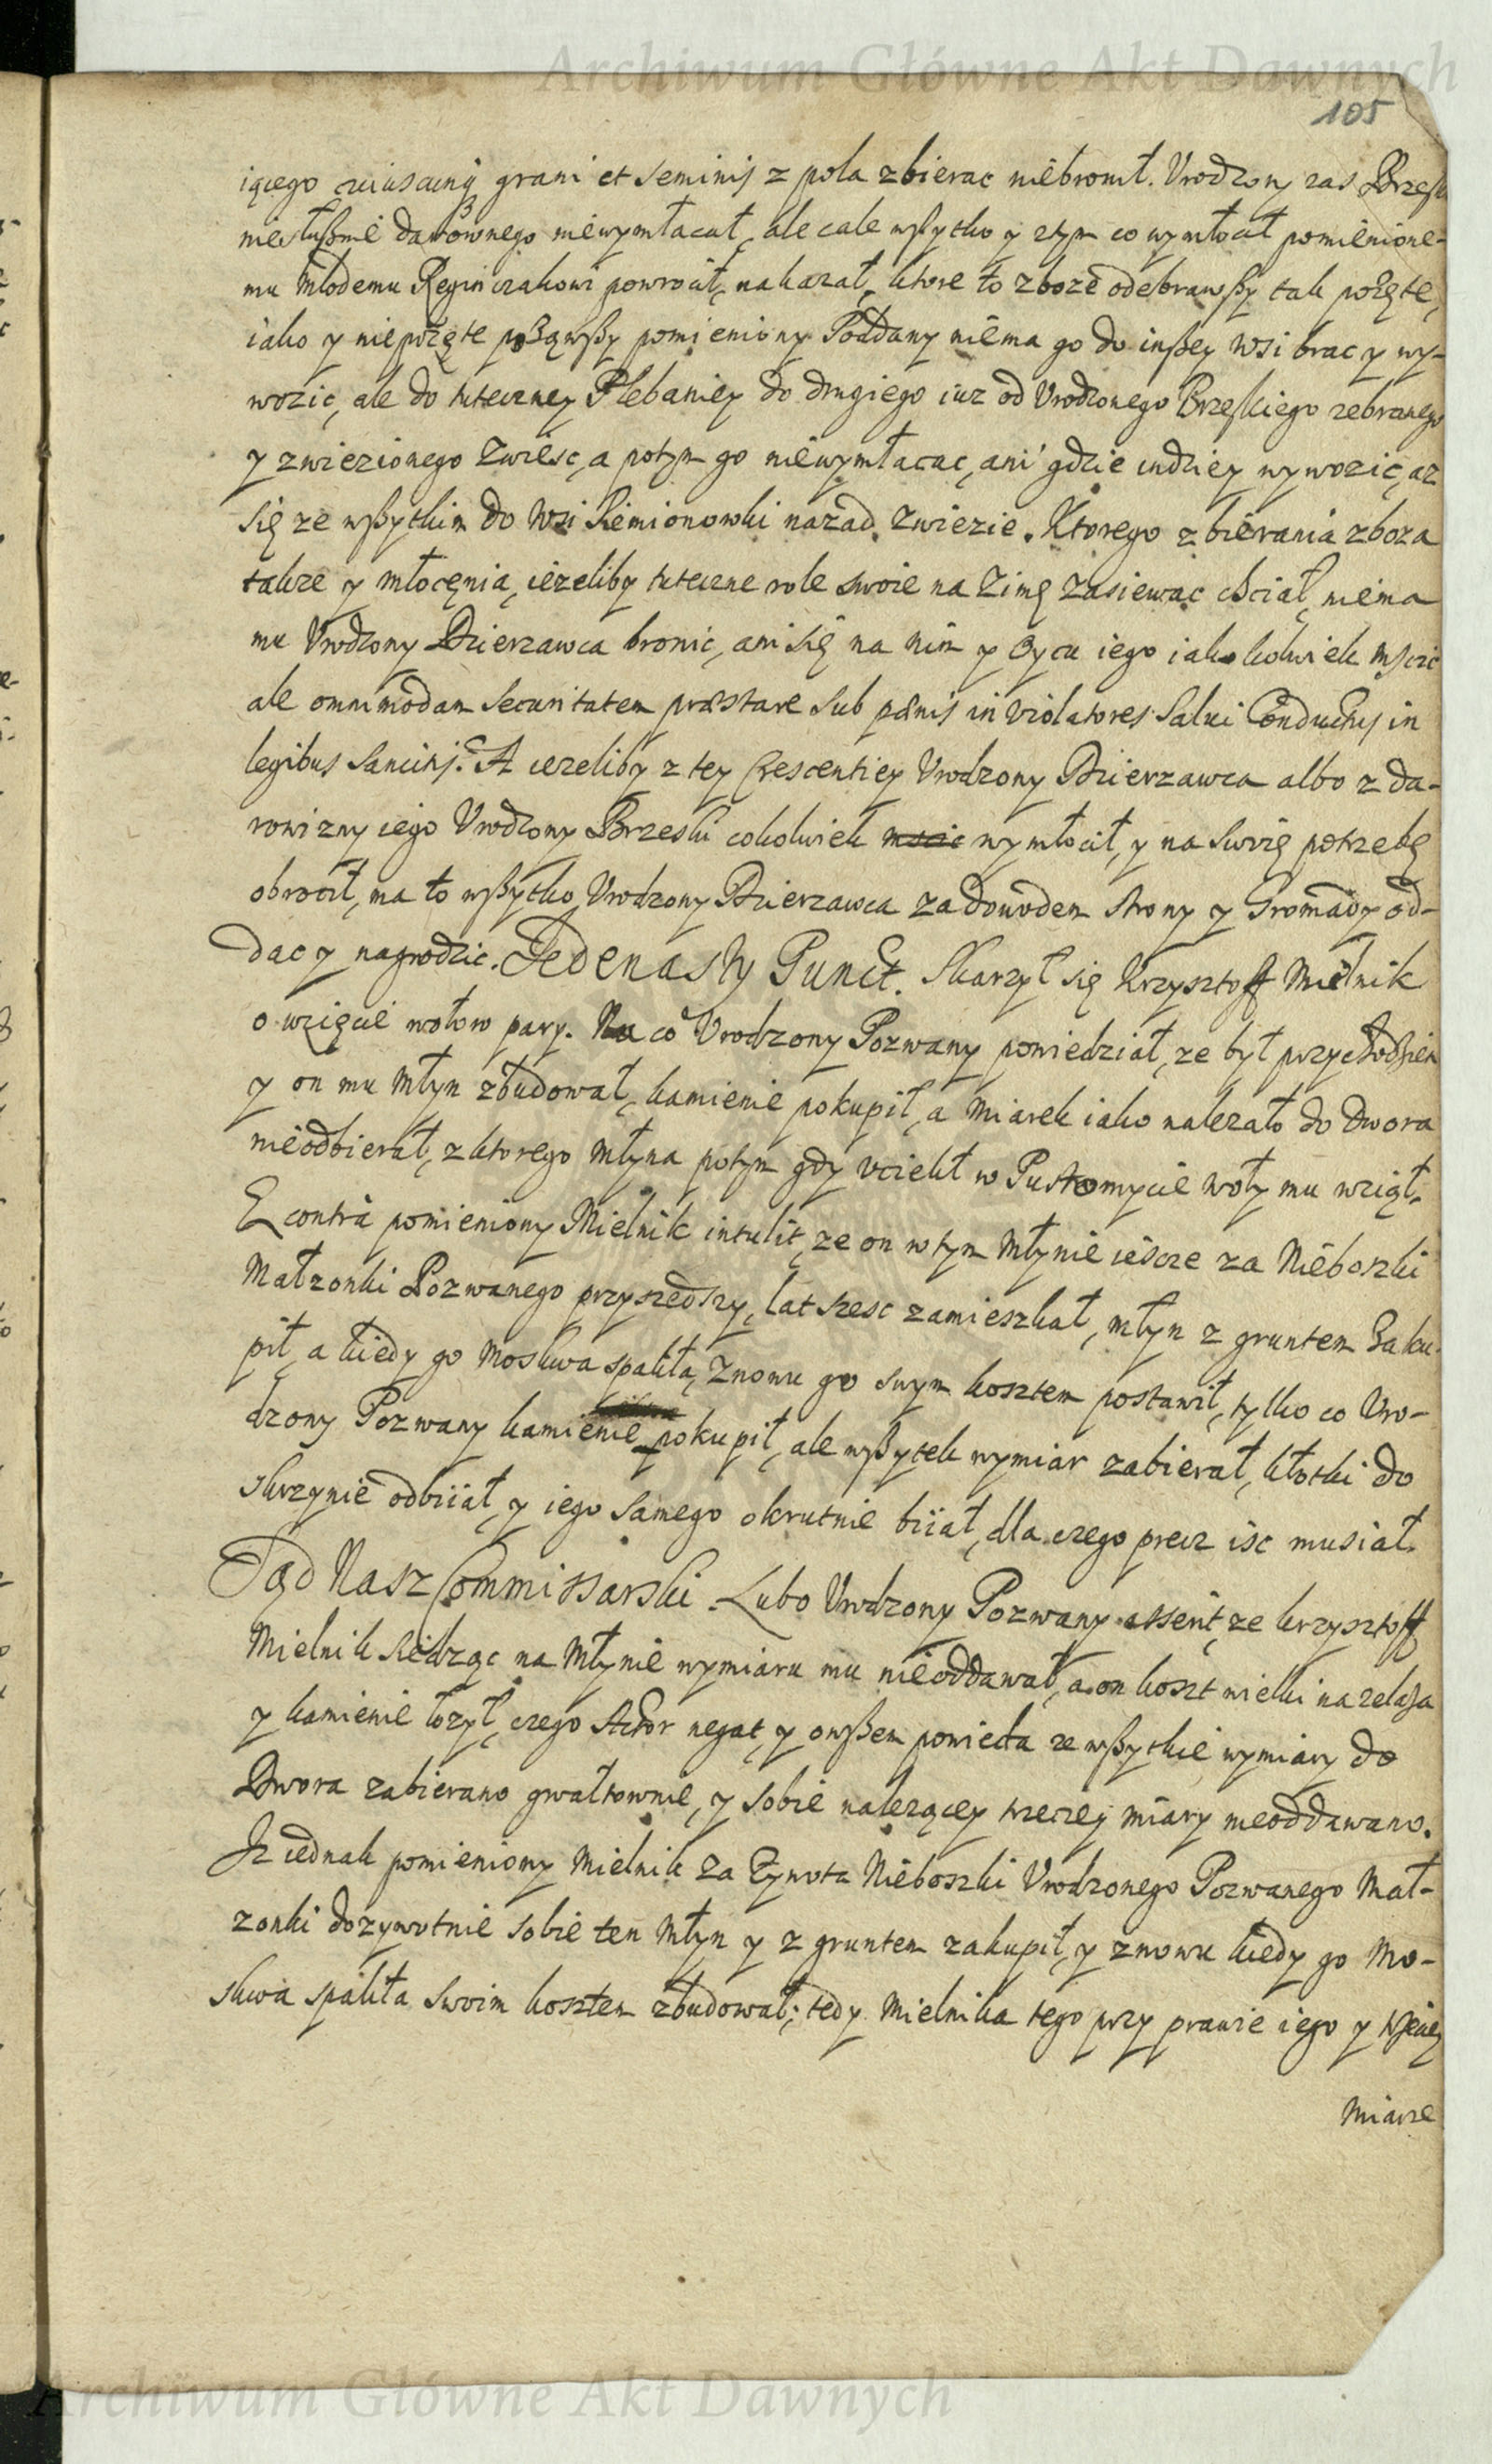 Archiwum Główne Akt Dawnych
105
iącego cuiuscunq grani et seminis z pola zbierac niebronił. Vrodzony zas Brzesk
niesłusznie darownego niewymłacał, ale cale wszytko y z tym co wymłocił pomienione-
mu Młodemu Reginczakowi powrocił, nakazał, ktore to zboze odebrawszy tak pozęte,
iako y niepozęte pozawszy pomieniony Poddany niema go do inszey Wsi brac y wy-
wozic, ale do tuteczney Plebaniey do drugiego iuz od Vrodzonego Brzeskiego zebranego
y zwiezionego zwiesc, a potym go niewymłacac, ani gdzie indziey wywozic, az
się ze wszytkim do Wsi Siemionowki nazad zwiezie. Ktorego zbierania zboza
takze y młocęnia, iezeliby tuteczne role swoie na Zimę zasiewac chciał, niema
mu Vrodzony Dzierzawca bronic, ani się na nim y Oycu iego iakokolwiek mscic
ale omnimodam securitatem præstare sub pœnis in violatores Salui Conductus in
legibus sancitis. A iezeliby z tey Crescentiey Vrodzony Dzierzawca albo z da-
rowizny iego Vrodzony Brzeski cokolwiek mscic wymłocił, y na swoię potrzebę
obrocił, ma to wszytko Vrodzony Dzierzawca za dowodem strony y Gromady od-
dac y nagrodzic. Jedenasty Punct. Skarzył się Krzysztoff Mielnik
o wzięcie wołow pary. Na co Vrodzony Pozwany powiedział, ze był przychodzien
y on mu Młyn zbudował, kamienie pokupił, a miarek iako nalezało do Dwora
nieodbierał, z ktorego Młyna potym gdy vciekł w Pustomycie woły mu wziął.
E contra pomieniony Mielnik intulit, ze on w tym Młynie iescze za Nieboszki
Małzonki Pozwanego przyszedszy, lat szesc zamieszkał, młyn z gruntem zaku-
pił, a kiedy go Moskwa spaliła, znowu go swym kosztem postawił, tylko co Vro-
dzony Pozwany kamienie pokupił, ale wszytek wymiar zabierał, kłotki do
skrzynie odbiiał, y iego samego okrutnie biiał, dla czego precz isc musiał.
Sąd Nasz Commissarski. Lubo Vrodzony Pozwany asserit, ze Krzysztoff
Mielnik siedząc na Młynie wymiaru mu nieoddawał, a on koszt wielki na zelaza
y kamienie łozył, czego Actor negat, y owszem powieda ze wszytkie wymiary do
Dwora zabierano gwałtownie, y sobie nalezącey trzeciey miary nieoddawano.
Iz iednak pomieniony Mielnik za Zywota Nieboszki Vrodzonego Pozwanego Mał-
zonki dozywotnie sobie ten Młyn y z gruntem zakupił, y znowu kiedy go Mo-
skwa spaliła swoim kosztem zbudował; tedy Mielnika tego przy prawie iego y trzeciey
Miarze
Archiwum Główne Akt Dawnych